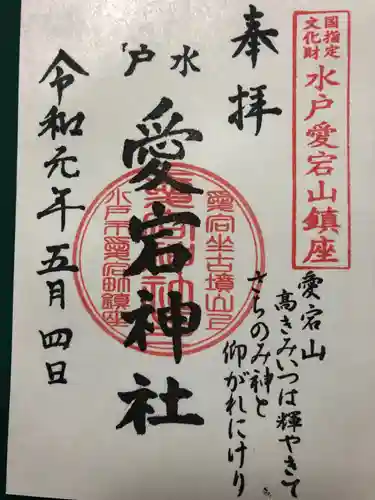 奉拝
国指定
文化財
水戸愛宕山鎮座
水戸
愛宕神社
愛宕坐古墳山上
水戸市愛宕町鎮座
愛宕山
高きみいつは輝やきて
さちのみ神と
仰がれにけり
令和元年五月四日